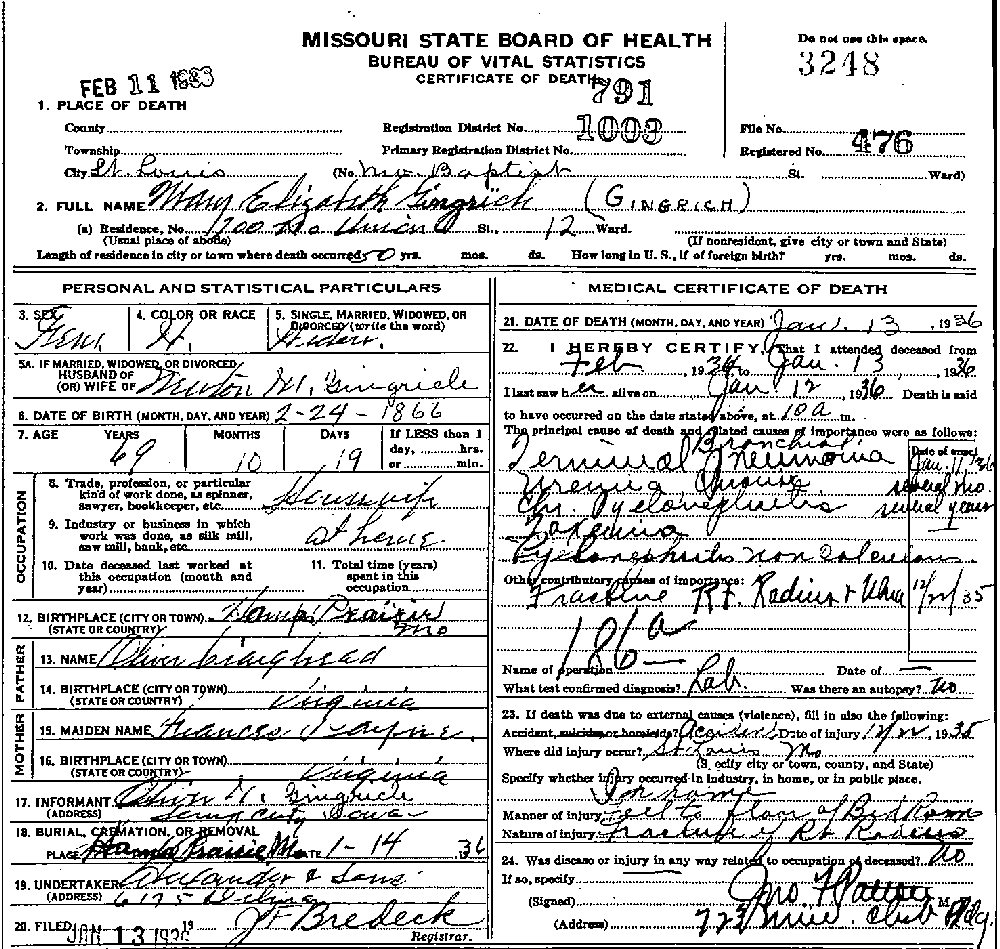 MISSOURI STATE BOARD OF HEALTH
BUREAU OF VITAL STATISTICS
CERTIFICATE OF DEATH
Do not use this space.
3248
FEB 11 1936
791
1. PLACE OF DEATH
County Registration District No. 1003 File No.
Township Primary Registration District No. Registered No. 476
City St. Louis (No. Mo Baptist St. Ward)
2. FULL NAME Mary Elizabeth Gingrich (GINGRICH)
(a) Residence, No. 1700 No Union St., 12 Ward.
(Usual place of abode) (If nonresident, give city or town and State)
Length of residence in city or town where death occurred 50 yrs. mos. ds. How long in U. S., if of foreign birth? yrs. mos. ds.
PERSONAL AND STATISTICAL PARTICULARS
3. SEX Fem. 4. COLOR OR RACE W. 5. SINGLE, MARRIED, WIDOWED, OR DIVORCED (write the word) Widow.
5A. IF MARRIED, WIDOWED, OR DIVORCED
HUSBAND OF
(OR) WIFE OF Newton M. Gingrich
6. DATE OF BIRTH (MONTH, DAY, AND YEAR) 2-24-1866
7. AGE YEARS MONTHS DAYS If LESS than 1
69 10 19 day, hrs.
or min.
OCCUPATION
8. Trade, profession, or particular
kind of work done, as spinner,
sawyer, bookkeeper, etc. Housewife
9. Industry or business in which
work was done, as silk mill,
saw mill, bank, etc. at home
10. Date deceased last worked at
this occupation (month and
year)
11. Total time (years)
spent in this
occupation
12. BIRTHPLACE (CITY OR TOWN) Prairie
(STATE OR COUNTRY) Mo
FATHER
13. NAME Oliver Craighead
14. BIRTHPLACE (CITY OR TOWN)
(STATE OR COUNTRY) Virginia
MOTHER
15. MAIDEN NAME Frances Layne
16. BIRTHPLACE (CITY OR TOWN)
(STATE OR COUNTRY) Virginia
17. INFORMANT Oliver N. Gingrich
(ADDRESS) City Iowa
18. BURIAL, CREMATION, OR REMOVAL
PLACE Prairie Mo DATE 1-14 36
19. UNDERTAKER & Sons
(ADDRESS) 6175 Delmar
20. FILED JAN 13 1936 19 J F Bredeck
Registrar.
MEDICAL CERTIFICATE OF DEATH
21. DATE OF DEATH (MONTH, DAY, AND YEAR) Jan. 13, 1936
22. I HEREBY CERTIFY, That I attended deceased from
Feb, 1934 to Jan. 13, 1936
I last saw her alive on Jan 12 1936 Death is said
to have occurred on the date stated above, at 10 a m.
The principal cause of death and related causes of importance were as follows:
Date of onset
Bronchial
Terminal Pneumonia Jan. 11, 36
Uremia several mo.
Chr. Pyelonephritis several years
Toxemia
Pyelonephritis non calculous
Other contributory causes of importance:
Fracture Rt. Radius & Ulna 12/22/35
186a
Name of operation Date of —
What test confirmed diagnosis? Lab. Was there an autopsy? No
23. If death was due to external causes (violence), fill in also the following:
Accident, suicide, or homicide? Accident Date of injury 12/22, 1935
Where did injury occur? St Louis Mo
(Specify city or town, county, and State)
Specify whether injury occurred in industry, in home, or in public place.
In home
Manner of injury Fell to floor of Bed Room
Nature of injury Fracture of Rt Radius
24. Was disease or injury in any way related to occupation of deceased? No
If so, specify
(Signed) Jno. F M. D.
(Address) 723 Bldg.